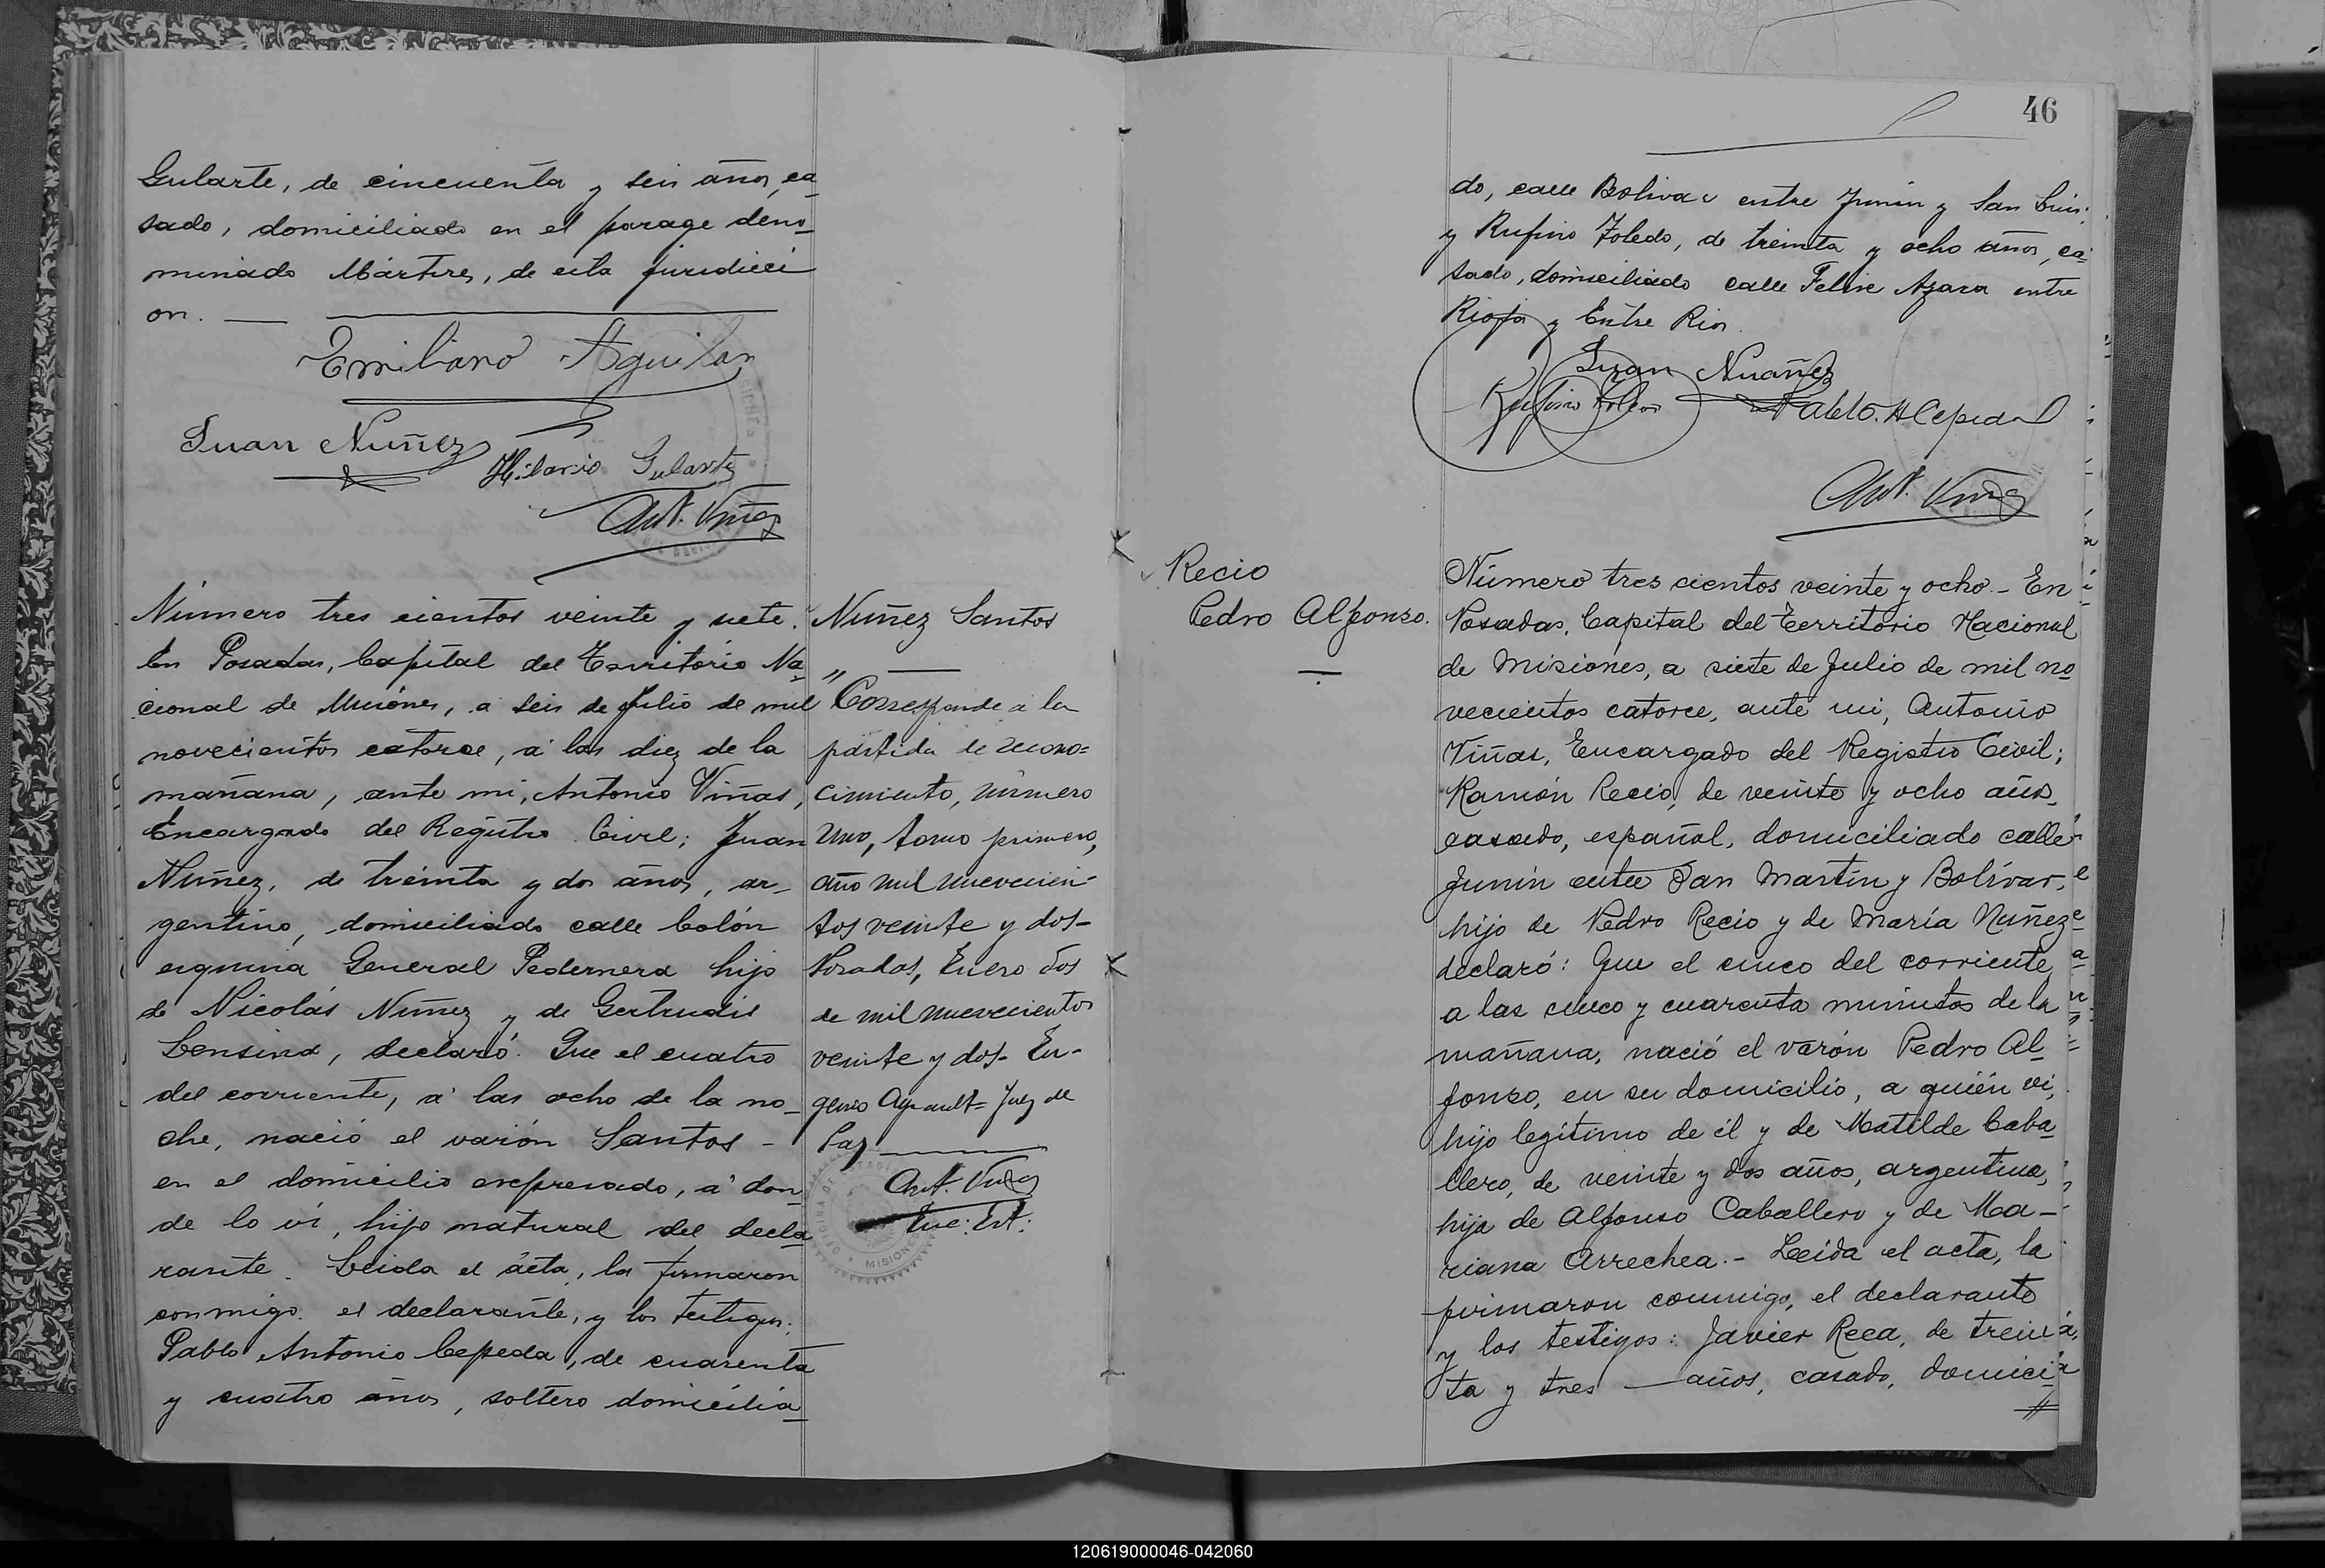 Gularte, de cincuenta y seis años, ca-
sado, domiciliado en el parage deno-
minado Mártires, de esta jurisdicci
on. —
Emiliano Aguilar
Juan Nuñez
Hilario Gularte
Ant. Viñas
Número tres cientos veinte y siete.
En Posadas, Capital del Territorio Na-
cional de Misiónes, a seis de Julio de mil
novecientos catorce, á las diez de la
mañana, ante mi, Antonio Viñas,
Encargado del Registro Civil; Juan
Nuñez, de treinta y dos años, ar-
gentino, domiciliado calle Colón
esquina General Pedernera hijo
de Nicolás Nuñez y de Gertrudis
Censina, declaró: Que el cuatro
del corriente, á las ocho de la no-
che, nació el varón Santos -
en el domicilio expresado, á don-
de lo ví, hijo natural del decla-
rante. Leida el ácta, la firmaron
conmigo. el declarante, y los testigos:
Pablo Antonio Cepeda, de cuarenta
y cuatro años, soltero domicilia-
Nuñez Santos
" —
Corresponde á la
partida de recono=
cimiento, número
uno, tomo primero,
año mil nuevecien-
tos veinte y dos-
Posadas, Enero dos
de mil nuevecientos
veinte y dos- Eu-
genio = Juez de
Paz
Ant. Viñas
Enc: Est:
OFICINA DE ESTADI
MISIONES
46
do, calle Bolivar entre Junin y San Luis.
y Rufino Toledo, de treinta y ocho años, ca-
sado, domiciliado calle Felix Azara entre
Rioja y Entre Rios.
Juan Nuañez
Rufino Toledo
Pablo. A Cepeda
Ant. Viñas
Recio
Pedro Alfonso.
Número tres cientos veinte y ocho.- En
Posadas, Capital del Territorio Nacional
de Misiónes, a siete de Julio de mil no
vecientos catorce, ante mi, Antonio
Viñas, Encargado del Registro Civil;
Ramón Recio, de veinte y ocho años,
casado, español, domiciliado calle
Junín entre San Martín y Bolívar,
hijo de Pedro Recio y de María Nuñez
declaró: Que el cinco del corriente
a las cinco y cuarenta minutos de la
mañana, nació el varón Pedro Al-
fonso, en su domicilio, a quién ví,
hijo legítimo de él y de Matilde Caba-
llero, de veinte y dos años, argentina,
hija de Alfonso Caballero y de Ma-
riana Arrechea.- Leída el acta, la
firmaron conmigo, el declarante
y los testigos: Javier Reca, de trein
ta y tres — años, casado, domici-
120619000046-042060